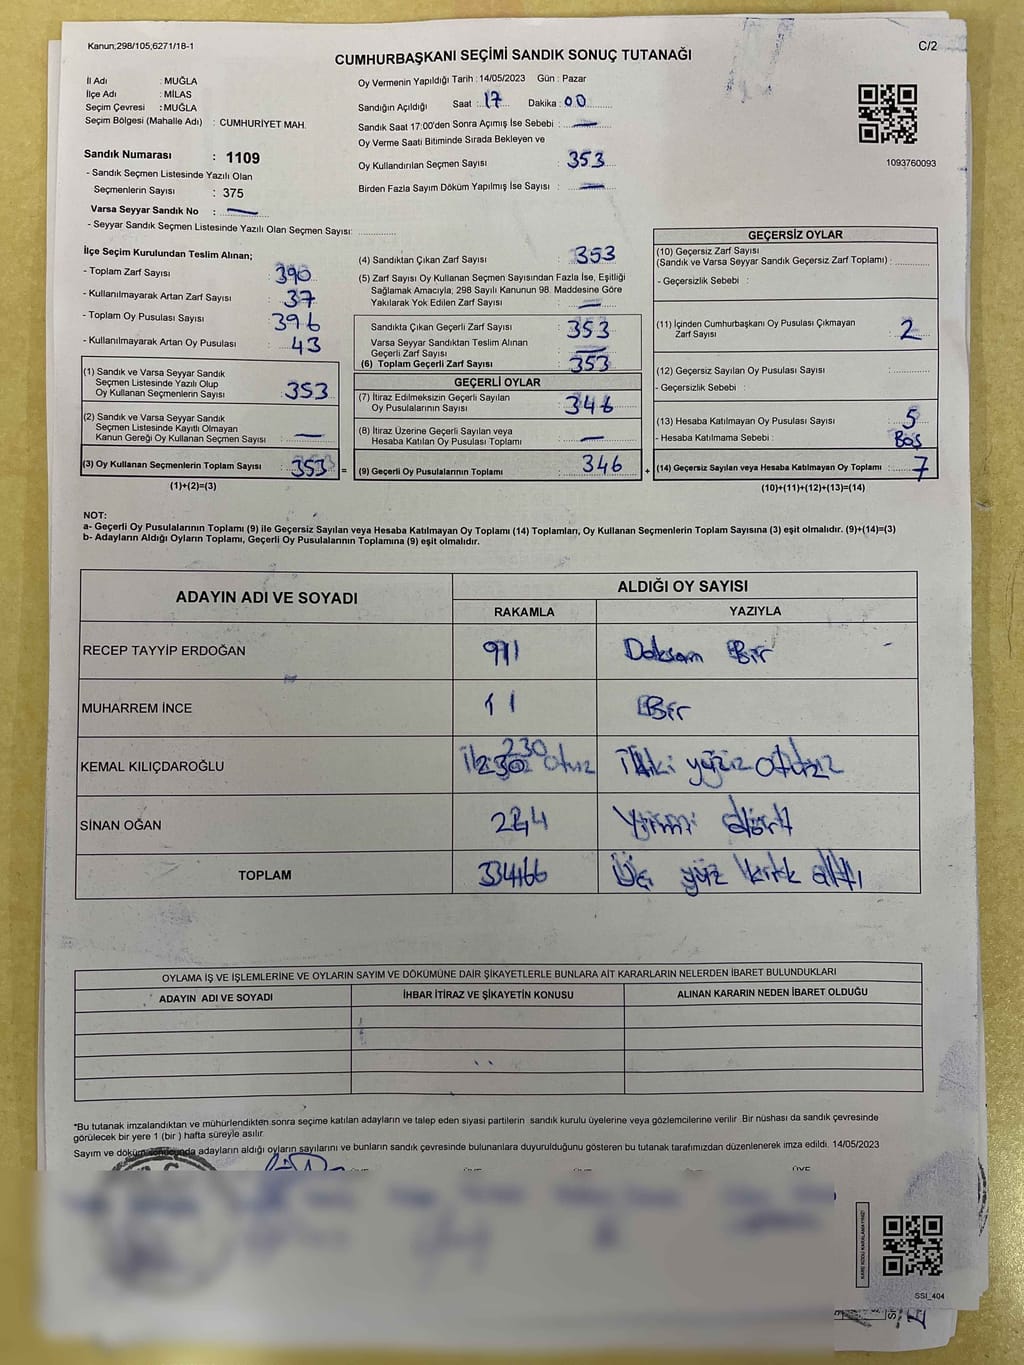 Kanun,298/105,6271/18-1
C/2
CUMHURBAŞKANI SEÇİMİ SANDIK SONUÇ TUTANAĞI
İl Adı : MUĞLA
İlçe Adı : MİLAS
Seçim Çevresi : MUĞLA
Seçim Bölgesi (Mahalle Adı) : CUMHURİYET MAH.
Sandık Numarası : 1109
- Sandık Seçmen Listesinde Yazılı Olan
Seçmenlerin Sayısı : 375
Varsa Seyyar Sandık No : —
- Seyyar Sandık Seçmen Listesinde Yazılı Olan Seçmen Sayısı: ............
Oy Vermenin Yapıldığı Tarih : 14/05/2023 Gün : Pazar
Sandığın Açıldığı Saat : 17 Dakika : 00
Sandık Saat 17:00'den Sonra Açımış İse Sebebi : —
Oy Verme Saati Bitiminde Sırada Bekleyen ve
Oy Kullandırılan Seçmen Sayısı : 353
Birden Fazla Sayım Döküm Yapılmış İse Sayısı : —
1093760093
İlçe Seçim Kurulundan Teslim Alınan;
- Toplam Zarf Sayısı : 390
- Kullanılmayarak Artan Zarf Sayısı : 37
- Toplam Oy Pusulası Sayısı : 396
- Kullanılmayarak Artan Oy Pusulası : 43
(1) Sandık ve Varsa Seyyar Sandık
Seçmen Listesinde Yazılı Olup
Oy Kullanan Seçmenlerin Sayısı : 353
(2) Sandık ve Varsa Seyyar Sandık
Seçmen Listesinde Kayıtlı Olmayan
Kanun Gereği Oy Kullanan Seçmen Sayısı : —
(3) Oy Kullanan Seçmenlerin Toplam Sayısı : 353 =
(1)+(2)=(3)
(4) Sandıktan Çıkan Zarf Sayısı : 353
(5) Zarf Sayısı Oy Kullanan Seçmen Sayısından Fazla İse, Eşitliği
Sağlamak Amacıyla, 298 Sayılı Kanunun 98. Maddesine Göre
Yakılarak Yok Edilen Zarf Sayısı : —
Sandıkta Çıkan Geçerli Zarf Sayısı : 353
Varsa Seyyar Sandıktan Teslim Alınan
Geçerli Zarf Sayısı : —
(6) Toplam Geçerli Zarf Sayısı : 353
GEÇERLİ OYLAR
(7) İtiraz Edilmeksizin Geçerli Sayılan
Oy Pusulalarının Sayısı : 346
(8) İtiraz Üzerine Geçerli Sayılan veya
Hesaba Katılan Oy Pusulası Toplamı : —
(9) Geçerli Oy Pusulalarının Toplamı : 346 +
GEÇERSİZ OYLAR
(10) Geçersiz Zarf Sayısı
(Sandık ve Varsa Seyyar Sandık Geçersiz Zarf Toplamı) : ............
- Geçersizlik Sebebi :
(11) İçinden Cumhurbaşkanı Oy Pusulası Çıkmayan
Zarf Sayısı : 2
(12) Geçersiz Sayılan Oy Pusulası Sayısı : ............
- Geçersizlik Sebebi :
(13) Hesaba Katılmayan Oy Pusulası Sayısı : 5
- Hesaba Katılmama Sebebi : Boş
(14) Geçersiz Sayılan veya Hesaba Katılmayan Oy Toplamı : 7
(10)+(11)+(12)+(13)=(14)
NOT:
a- Geçerli Oy Pusulalarının Toplamı (9) ile Geçersiz Sayılan veya Hesaba Katılmayan Oy Toplamı (14) Toplamları, Oy Kullanan Seçmenlerin Toplam Sayısına (3) eşit olmalıdır. (9)+(14)=(3)
b- Adayların Aldığı Oyların Toplamı, Geçerli Oy Pusulalarının Toplamına (9) eşit olmalıdır.
ADAYIN ADI VE SOYADI
ALDIĞI OY SAYISI
RAKAMLA YAZIYLA
RECEP TAYYİP ERDOĞAN 91 Doksan Bir
MUHARREM İNCE 1 Bir
KEMAL KILIÇDAROĞLU 230 iki yüz otuz
SİNAN OĞAN 24 Yirmi dört
TOPLAM 346 Üç yüz kırk altı
OYLAMA İŞ VE İŞLEMLERİNE VE OYLARIN SAYIM VE DÖKÜMÜNE DAİR ŞİKAYETLERLE BUNLARA AİT KARARLARIN NELERDEN İBARET BULUNDUKLARI
ADAYIN ADI VE SOYADI İHBAR İTİRAZ VE ŞİKAYETİN KONUSU ALINAN KARARIN NEDEN İBARET OLDUĞU
*Bu tutanak imzalandıktan ve mühürlendikten sonra seçime katılan adayların ve talep eden siyasi partilerin sandık kurulu üyelerine veya gözlemcilerine verilir. Bir nüshası da sandık çevresinde
görülecek bir yere 1 (bir ) hafta süreyle asılır.
Sayım ve döküm sonucunda adayların aldığı oyların sayılarını ve bunların sandık çevresinde bulunanlara duyurulduğunu gösteren bu tutanak tarafımızdan düzenlenerek imza edildi. 14/05/2023
KARE KODU KARALAMAYINIZ!
SSI_404